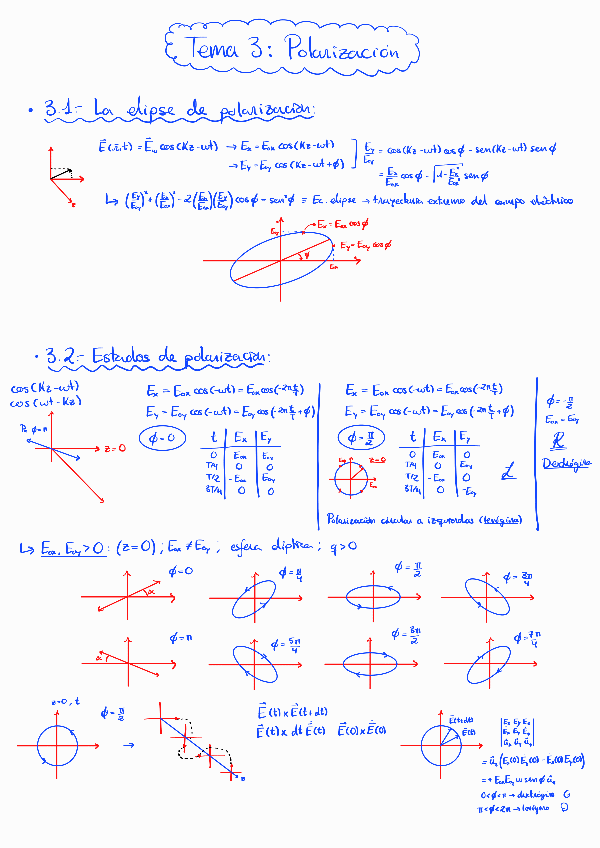 Tema 3: Polarización
• 3.1- La elipse de polarización:
E(z,t) = E₀ cos(Kz-wt) → Ex = E₀x cos(Kz-wt)
→ Ey = E₀y cos(Kz-wt+ϕ)
Ey/E₀y = cos(Kz-wt) cosϕ - sen(Kz-wt) senϕ
= Ex/E₀x cosϕ - √(1-Ex²/E₀x²) senϕ
↳ (Ey/E₀y)² + (Ex/E₀x)² - 2(Ex/E₀x)(Ey/E₀y) cosϕ = sen²ϕ ≡ Ec. elipse → trayectoria extremo del campo eléctrico
→ Ex = E₀x cosϕ
Ey = E₀y cosϕ
• 3.2- Estados de polarización:
cos(Kz-wt)
cos(wt-Kz)
ϕ=π
z=0
Ex = E₀x cos(-wt) = E₀x cos(-2π t/T)
Ey = E₀y cos(-wt) = E₀y cos(-2π t/T +ϕ)
ϕ=0
t Ex Ey
0 E₀x E₀y
T/4 0 0
T/2 -E₀x E₀y
3T/4 0 0
Ex = E₀x cos(-wt) = E₀x cos(-2π t/T)
Ey = E₀y cos(-wt) = E₀y cos(-2π t/T +ϕ)
ϕ=π/2
z=0
t Ex Ey
0 E₀x 0
T/4 0 E₀y
T/2 -E₀x 0
3T/4 0 -E₀y
L
Polarización circular a izquierdas (levógira)
ϕ=-π/2
E₀x = E₀y
R
Dextrógira
↳ E₀x, E₀y > 0 : (z=0) ; E₀x ≠ E₀y ; esfera elíptica ; q>0
ϕ=0
α
ϕ=π/4
ϕ=π/2
ϕ=3π/4
ϕ=π
α
ϕ=5π/4
ϕ=3π/2
ϕ=7π/4
z=0, t
ϕ=π/2
→
E(t) x E(t+dt)
E(t) x dt Ė(t) E(0) x Ė(0)
E(t+dt)
E(t)
= ûz (Ex(0) Ėy(0) - Ėx(0) Ey(0))
= + E₀x E₀y w senϕ ûz
0<ϕ<π → dextrógiro
π<ϕ<2π → levógiro